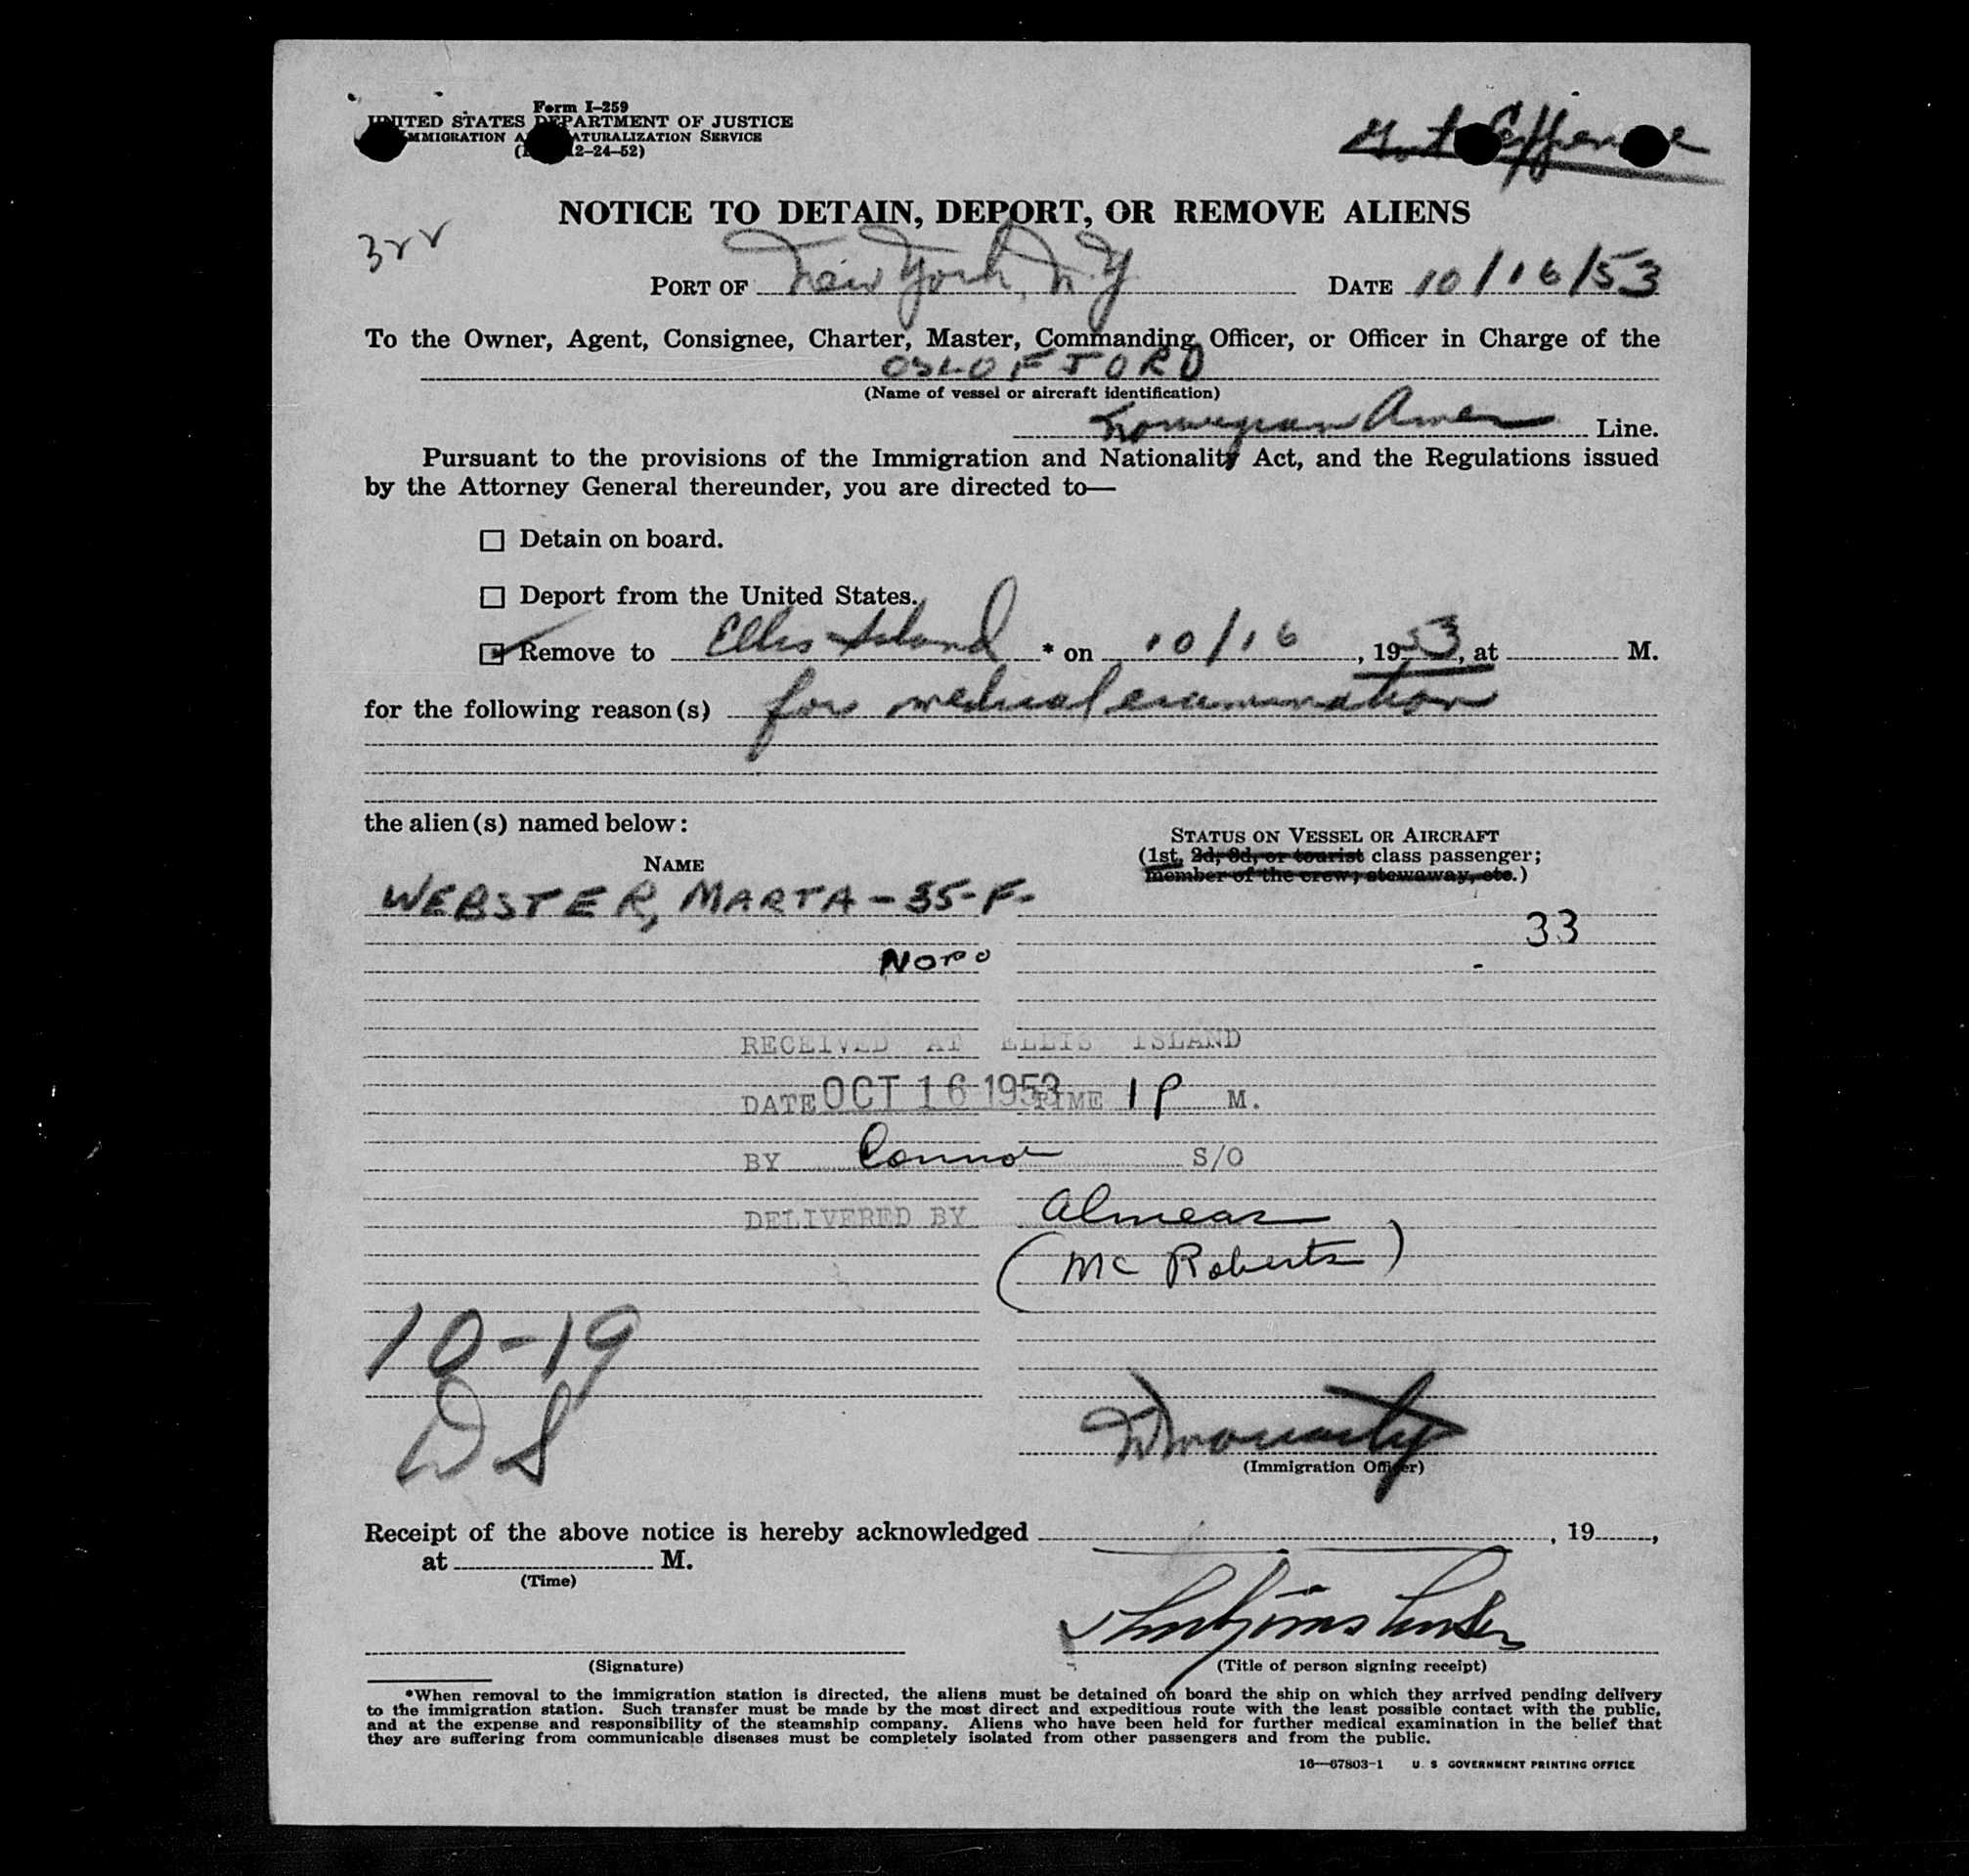 Form I-259
UNITED STATES DEPARTMENT OF JUSTICE
IMMIGRATION AND NATURALIZATION SERVICE
12-24-52)
Govt Expense
NOTICE TO DETAIN, DEPORT, OR REMOVE ALIENS
PORT OF New York, N.Y DATE 10/16/53
To the Owner, Agent, Consignee, Charter, Master, Commanding Officer, or Officer in Charge of the
OSLOFJORD
(Name of vessel or aircraft identification)
Norwegian Amer Line.
Pursuant to the provisions of the Immigration and Nationality Act, and the Regulations issued
by the Attorney General thereunder, you are directed to—
☐ Detain on board.
☐ Deport from the United States.
☑ Remove to Ellis Island * on 10/16, 1953, at M.
for the following reason(s) for medical examination
the alien(s) named below:
NAME
STATUS ON VESSEL OR AIRCRAFT
(1st, 2d, 3d, or tourist class passenger;
member of the crew; stowaway, etc.)
WEBSTER, MARTA-35-F-
33
RECEIVED AT ELLIS ISLAND
DATE OCT 16 1953 TIME 1 P M.
BY Connor S/O
DELIVERED BY
(Mc Roberts)
10-19
DS
(Immigration Officer)
Receipt of the above notice is hereby acknowledged , 19 ,
at M.
(Time)
(Signature)
(Title of person signing receipt)
*When removal to the immigration station is directed, the aliens must be detained on board the ship on which they arrived pending delivery
to the immigration station. Such transfer must be made by the most direct and expeditious route with the least possible contact with the public,
and at the expense and responsibility of the steamship company. Aliens who have been held for further medical examination in the belief that
they are suffering from communicable diseases must be completely isolated from other passengers and from the public.
16—67803-1 U. S GOVERNMENT PRINTING OFFICE